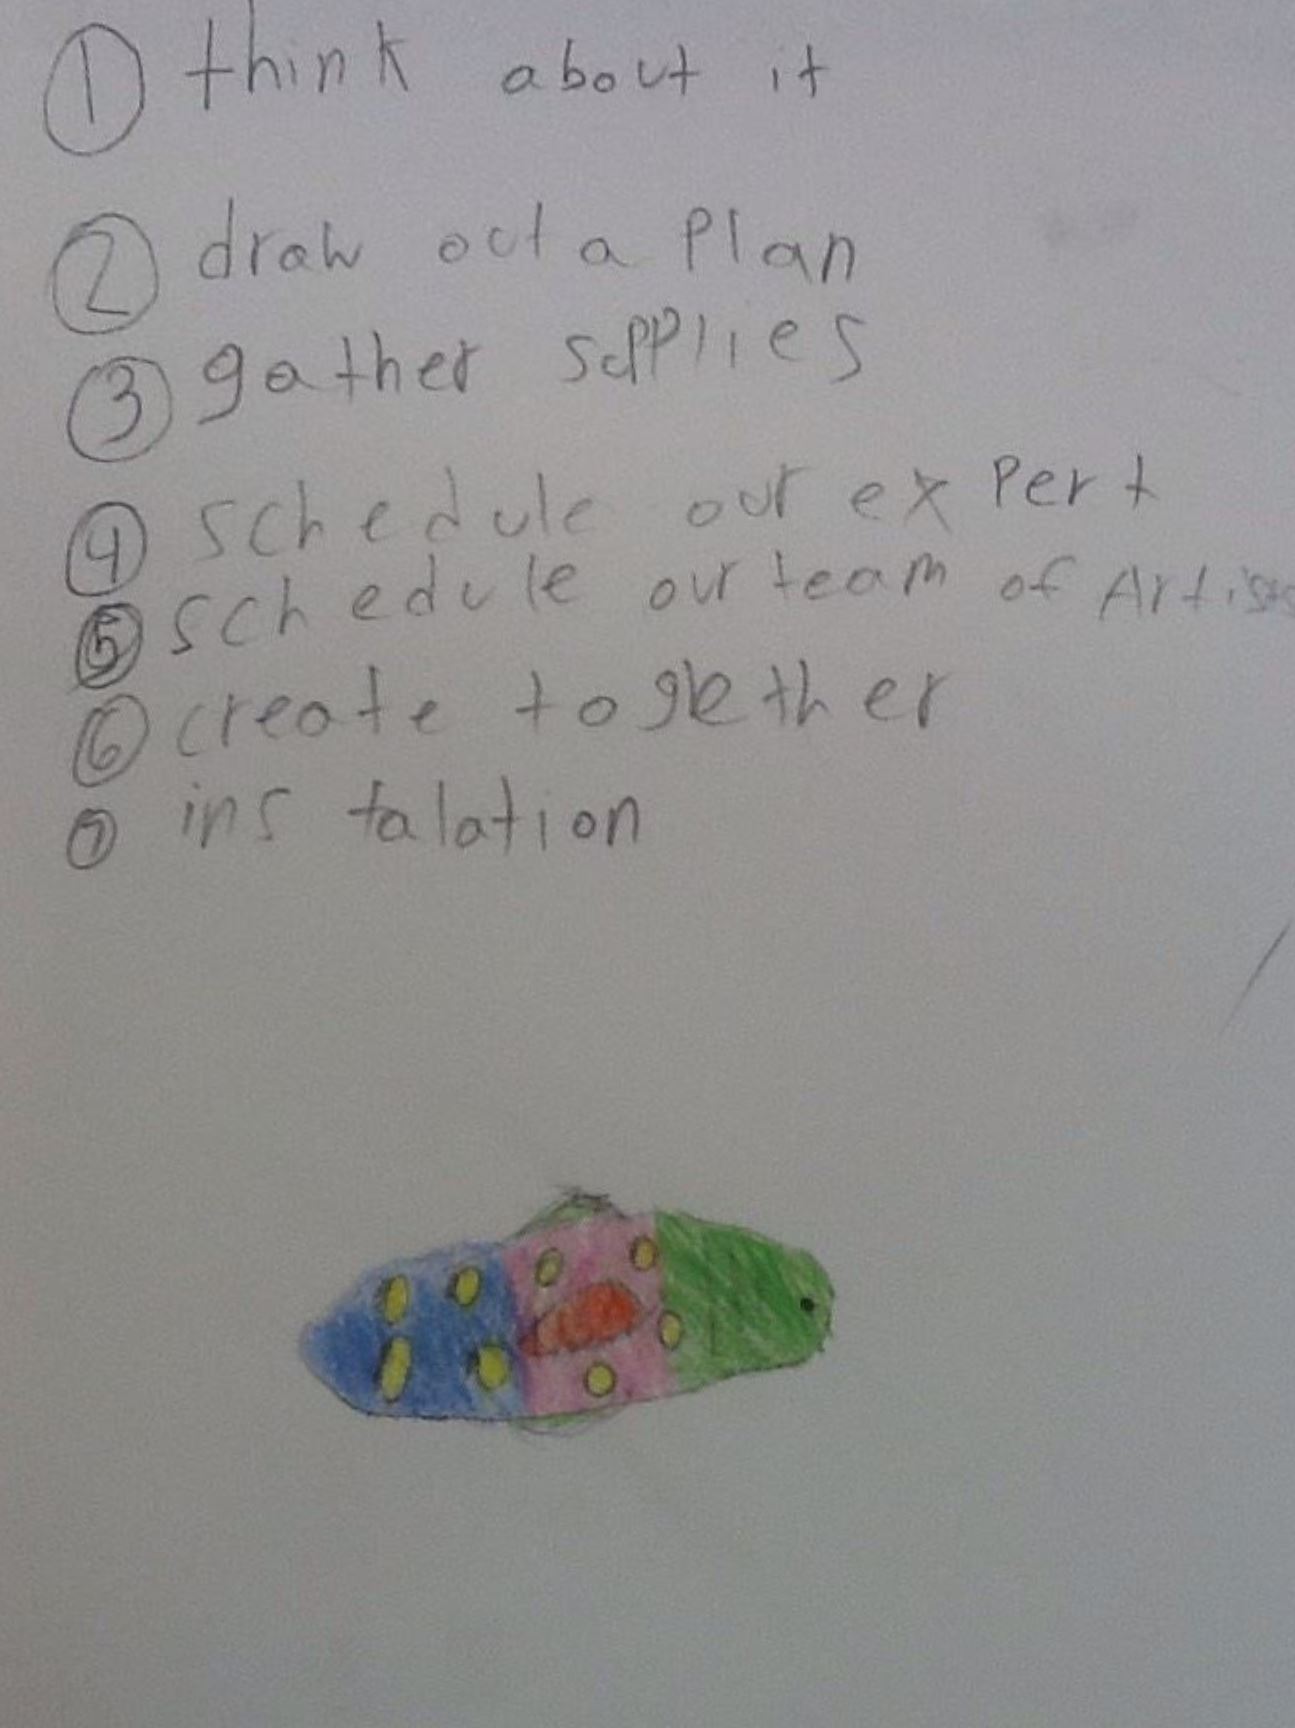 ① think about it
② draw out a Plan
③ gather supplies
④ schedule our expert
⑤ schedule our team of Artists
⑥ create together
⑦ instalation